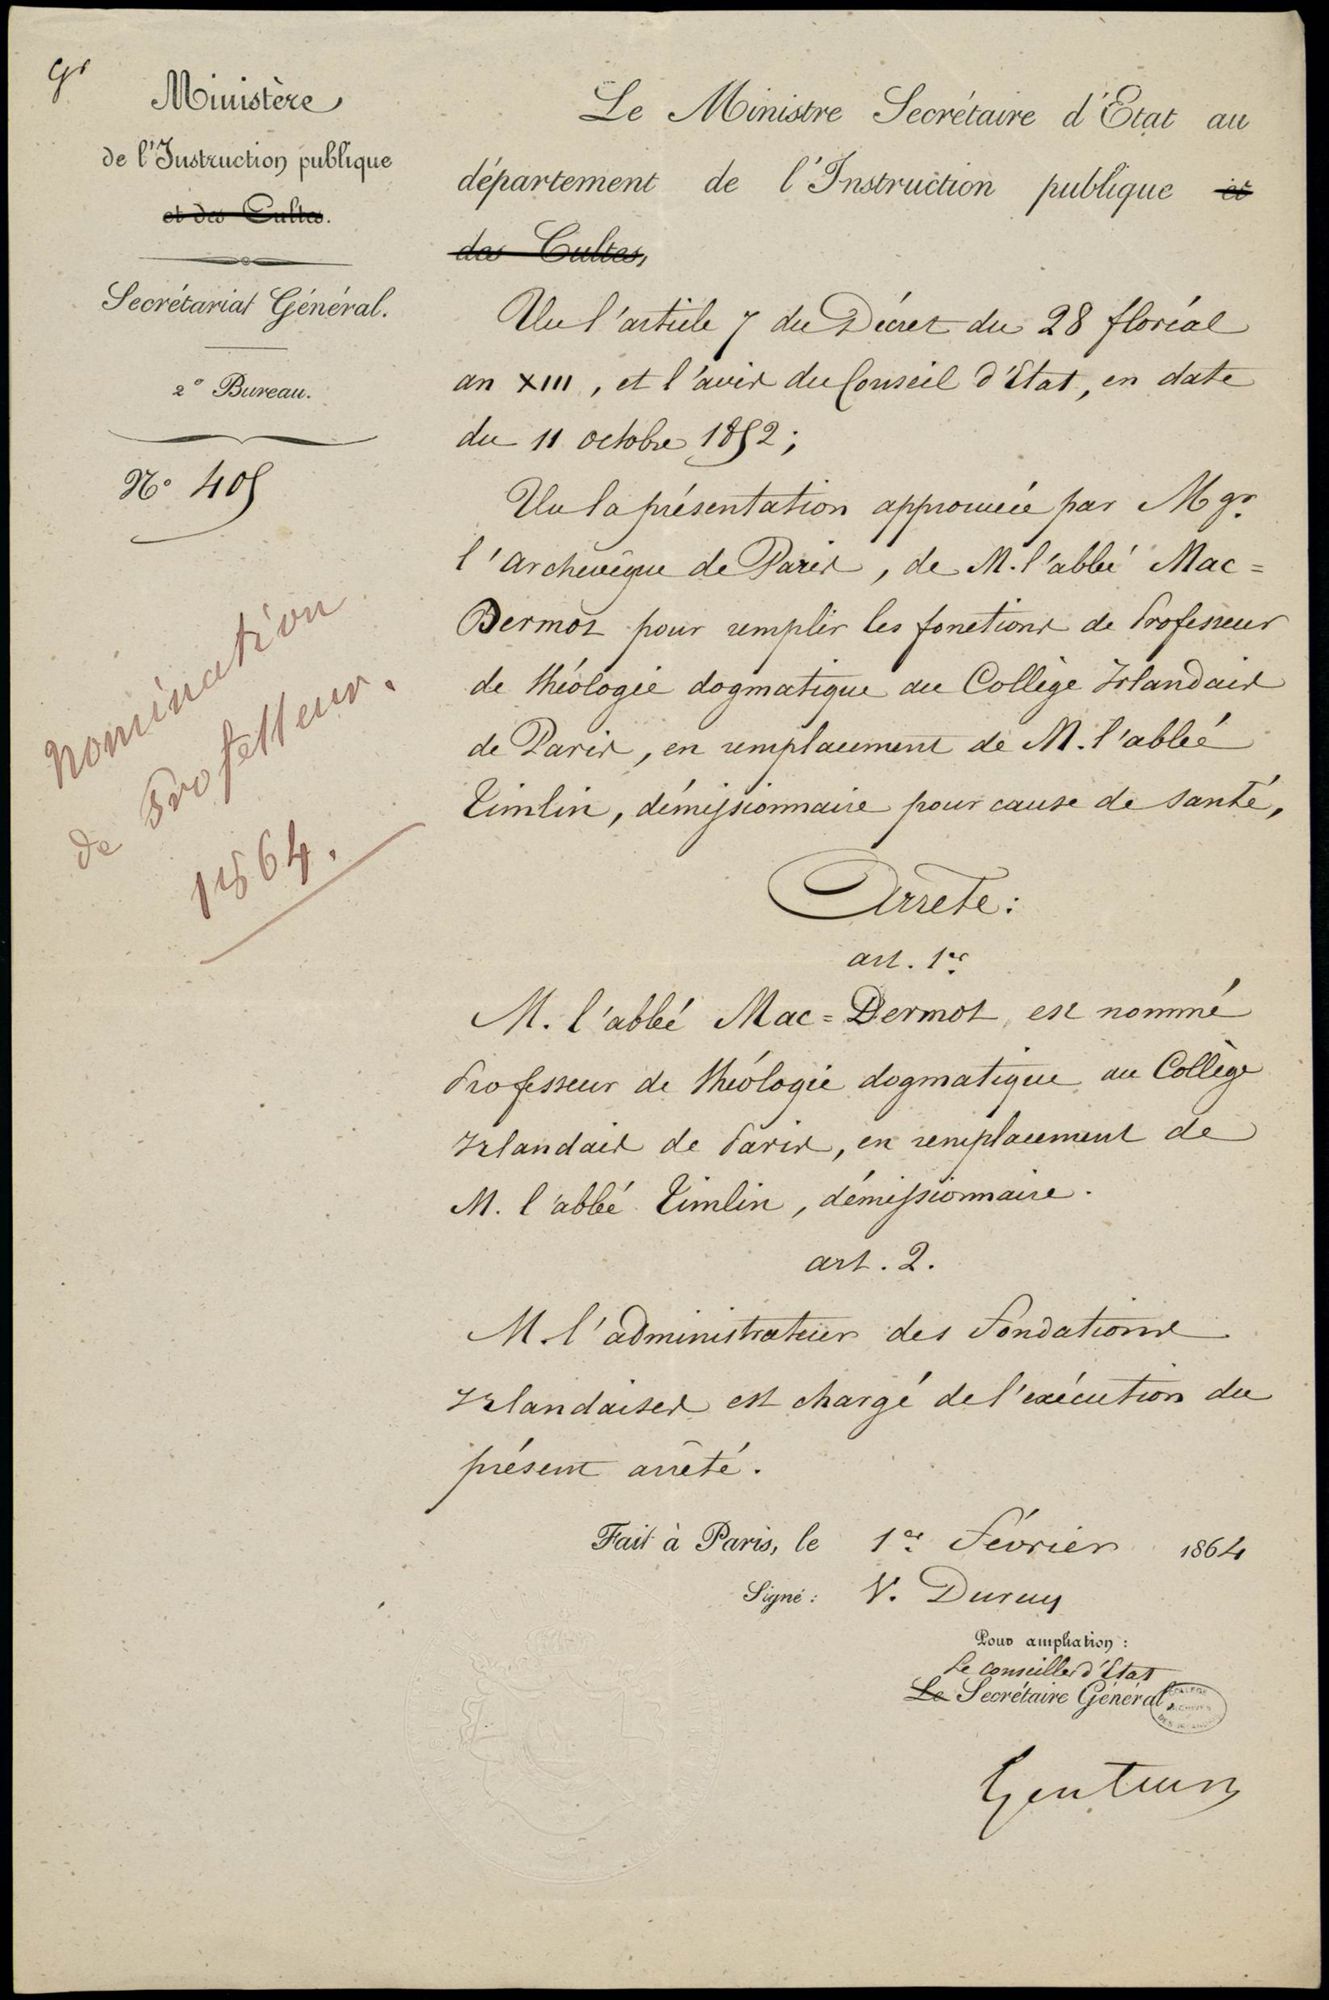 Ministère
de l'Instruction publique
et des Cultes.
Secrétariat Général.
2e Bureau.
No 405
nomination
de Professeur.
1864.
Le Ministre Secrétaire d'Etat au
département de l'Instruction publique et
des Cultes,
Vu l'article 7 du Décret du 28 floréal
an XIII, et l'avis du Conseil d'Etat, en date
du 11 octobre 1852;
Vu la présentation approuvée par Mgr
l'Archevêque de Paris, de M. l'abbé Mac=
Dermot pour remplir les fonctions de Professeur
de théologie dogmatique au Collège Irlandais
de Paris, en remplacement de M. l'abbé
Timlin, démissionnaire pour cause de santé,
Arrete:
art. 1er
M. l'abbé Mac=Dermot est nommé
Professeur de théologie dogmatique au Collège
Irlandais de Paris, en remplacement de
M. l'abbé Timlin, démissionnaire.
art. 2.
M. l'administrateur des Fondations
Irlandaises est chargé de l'exécution du
présent arrêté.
Fait à Paris, le 1er Février 1864
Signé: V. Duruy
Pour ampliation:
Le Conseiller d'Etat
Le Secrétaire Général,
COLLEGE
ARCHIVES
DES IRLANDAIS